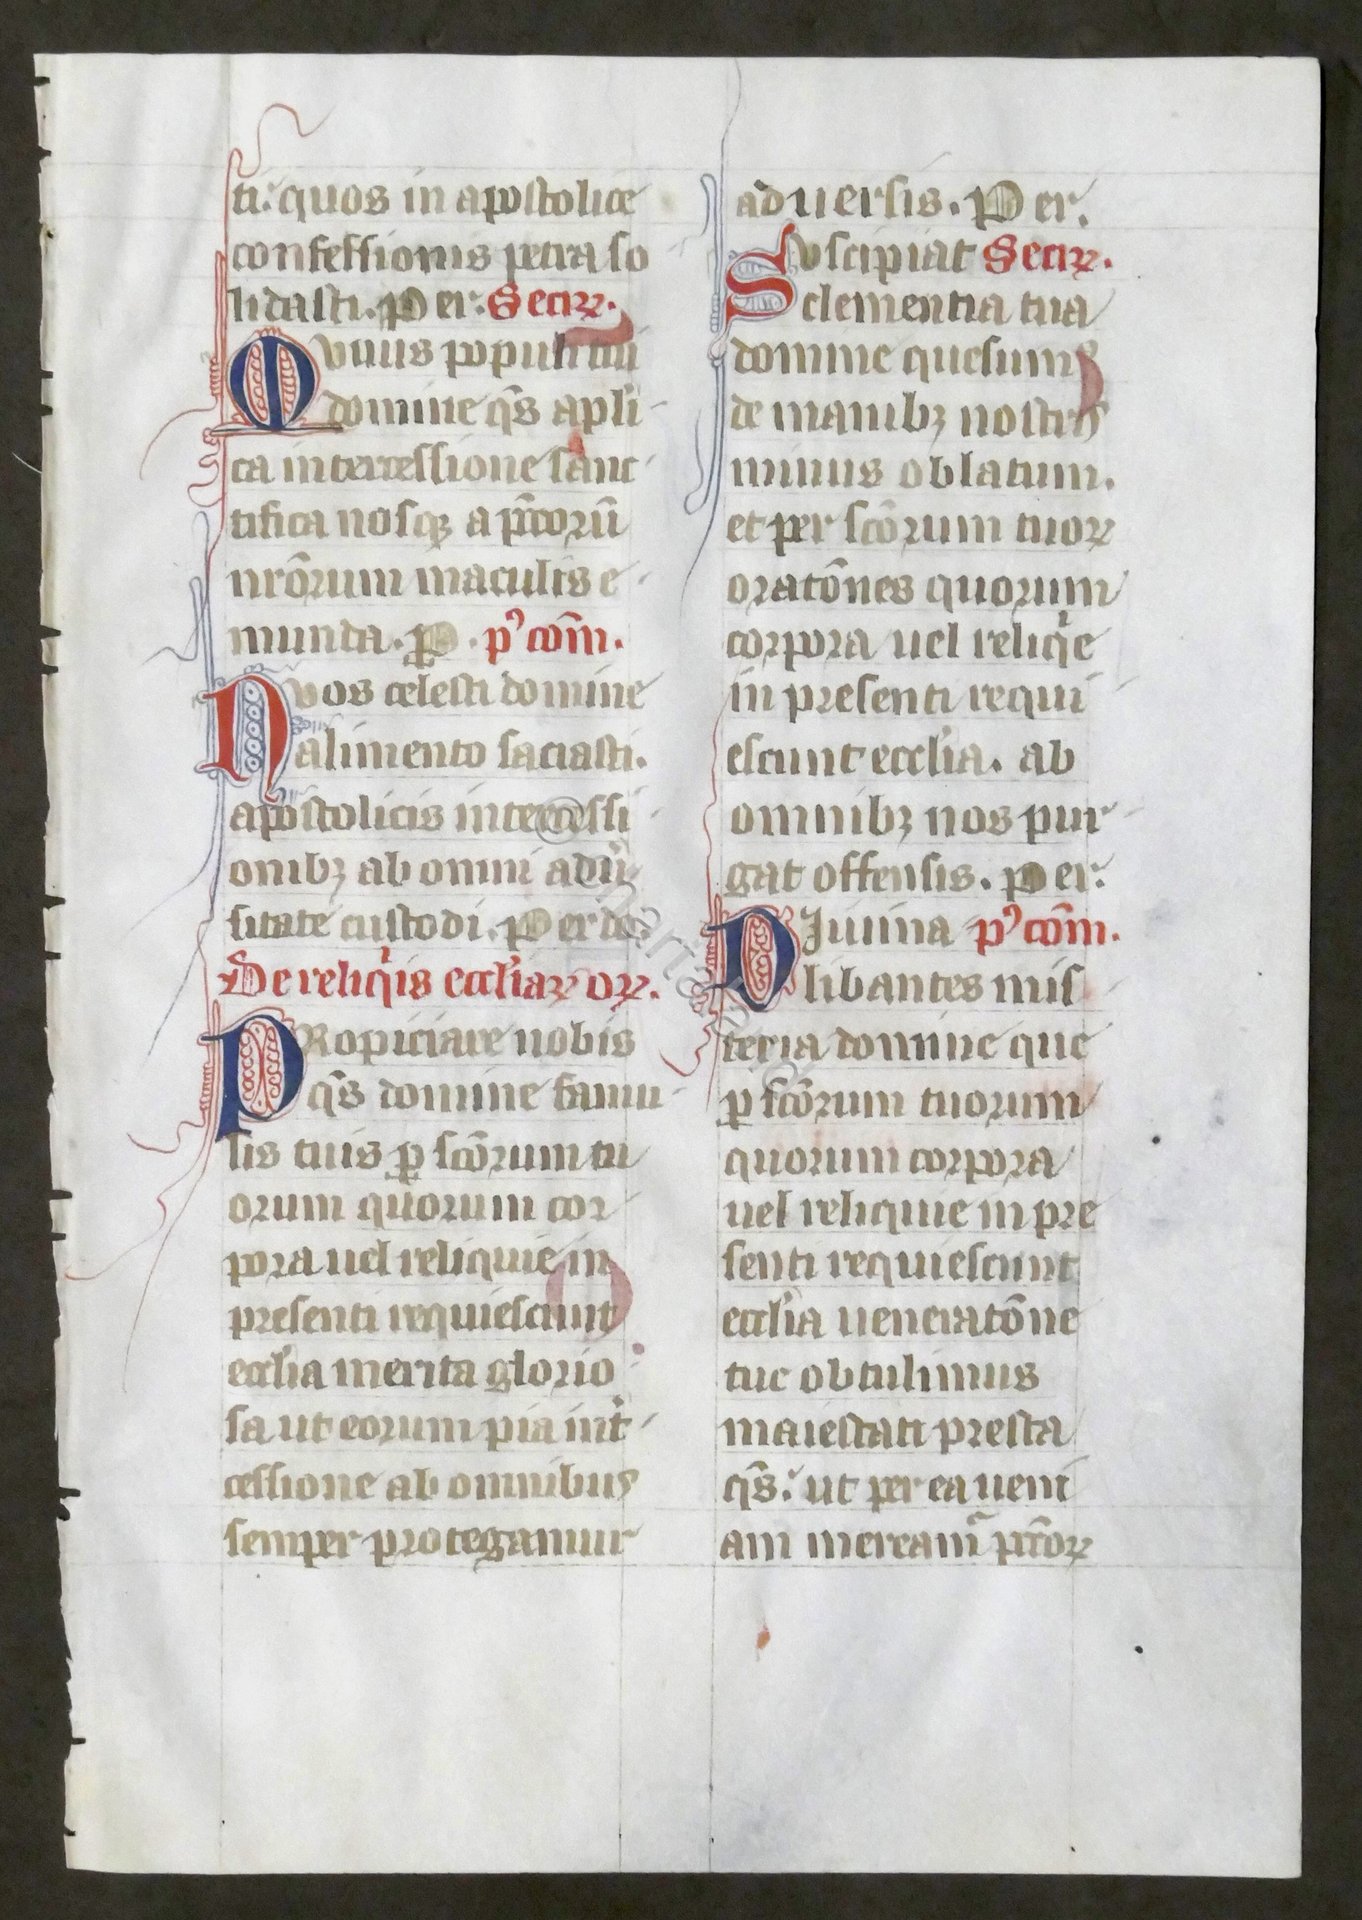 ti: quos in apostolice
confessionis petra so
lidasti. Per. Secꝛꝫ.
Mvnus populi tui
domine q̄s apl'i
ca intercessione sanc
tifica nosqꝫ a pc̄corū
nr̄orum maculis e
munda. P. p' com̄.
Nvos celesti domine
alimento saciasti.
apostolicis intercessi
onibꝫ ab omni adu'
sitate custodi. Per do
De reliq'is eccl'iaꝝ oꝝ.
PRopiciare nobis
q̄s domine famu
lis tuis ꝑ sc̄orum tu
orum quorum cor
pora uel reliquie in
presenti requiescunt
eccl'ia merita glorio
sa ut eorum pia int'
cessione ab omnibus
semper protegamur
aduersis. Per.
Svscipiat Secꝛꝫ.
clementia tua
domine quesum'
de manibꝫ nostris
munus oblatum.
et per sc̄orum tuoꝝ
orato̅nes quorum
corpora uel reliq'e
in presenti requi
escunt eccl'ia. ab
omnibꝫ nos pur
gat offensis. Per.
DIuina p' com̄.
libantes mis
teria domine que
ꝑ sc̄orum tuorum
quorum corpora
uel reliquie in pre
senti requiescunt
eccl'ia uenerato̅ne
tue obtulimus
maiestati presta
q̄s: ut per ea ueni
am meream̄ pc̄coꝝ